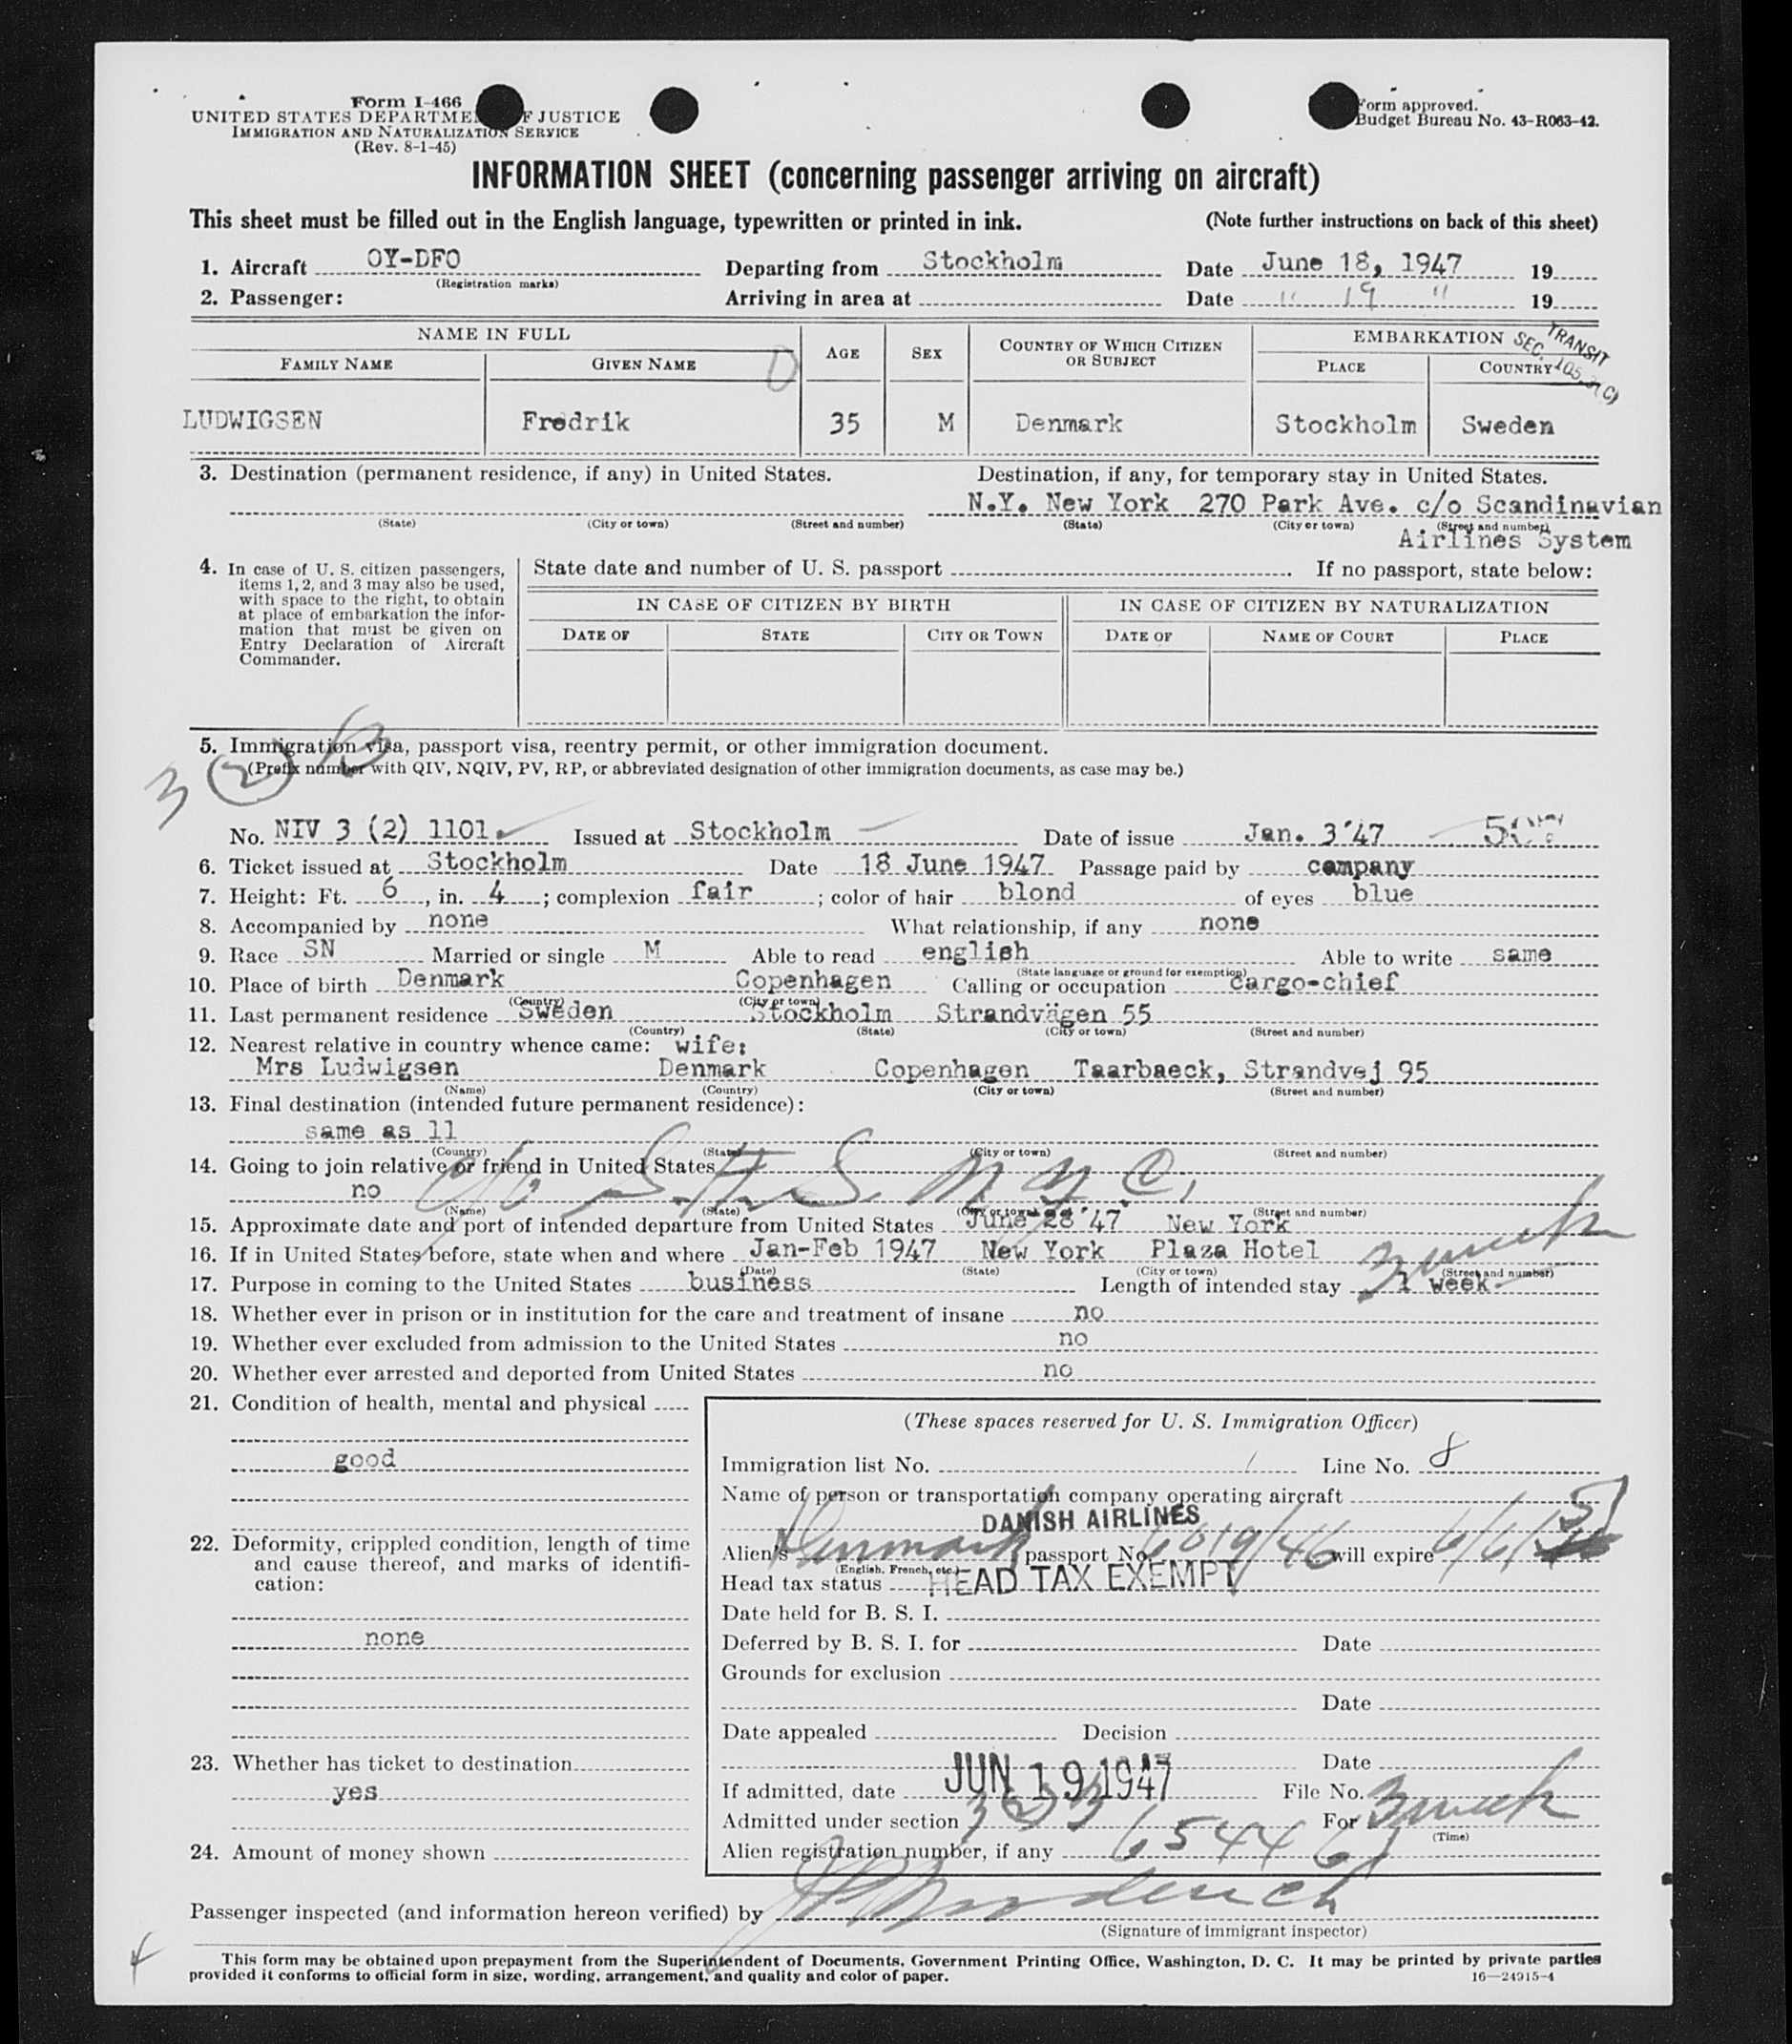 Form I-466
UNITED STATES DEPARTMENT OF JUSTICE
IMMIGRATION AND NATURALIZATION SERVICE
(Rev. 8-1-45)
Form approved.
Budget Bureau No. 43-R063-42.
INFORMATION SHEET (concerning passenger arriving on aircraft)
This sheet must be filled out in the English language, typewritten or printed in ink. (Note further instructions on back of this sheet)
1. Aircraft OY-DFO Departing from Stockholm Date June 18, 1947 19
(Registration marks)
2. Passenger: Arriving in area at Date " 19 " 19
NAME IN FULL AGE SEX COUNTRY OF WHICH CITIZEN OR SUBJECT EMBARKATION
TRANSIT
SEC. 105.3(C)
FAMILY NAME GIVEN NAME PLACE COUNTRY
LUDWIGSEN Fredrik 35 M Denmark Stockholm Sweden
3. Destination (permanent residence, if any) in United States. Destination, if any, for temporary stay in United States.
N.Y. New York 270 Park Ave. c/o Scandinavian
(State) (City or town) (Street and number) (State) (City or town) (Street and number)
Airlines System
4. In case of U. S. citizen passengers, items 1, 2, and 3 may also be used, with space to the right, to obtain at place of embarkation the information that must be given on Entry Declaration of Aircraft Commander.
State date and number of U. S. passport If no passport, state below:
IN CASE OF CITIZEN BY BIRTH IN CASE OF CITIZEN BY NATURALIZATION
DATE OF STATE CITY OR TOWN DATE OF NAME OF COURT PLACE
5. Immigration visa, passport visa, reentry permit, or other immigration document.
(Prefix number with QIV, NQIV, PV, RP, or abbreviated designation of other immigration documents, as case may be.)
3 (2) B
No. NIV 3 (2) 1101 Issued at Stockholm Date of issue Jan. 3'47
6. Ticket issued at Stockholm Date 18 June 1947 Passage paid by company
7. Height: Ft. 6, in. 4; complexion fair; color of hair blond of eyes blue
8. Accompanied by none What relationship, if any none
9. Race SN Married or single M Able to read english Able to write same
(State language or ground for exemption)
10. Place of birth Denmark Copenhagen Calling or occupation cargo-chief
(Country) (City or town)
11. Last permanent residence Sweden Stockholm Strandvägen 55
(Country) (State) (City or town) (Street and number)
12. Nearest relative in country whence came: wife:
Mrs Ludwigsen Denmark Copenhagen Taarbaeck, Strandvej 95
(Name) (Country) (City or town) (Street and number)
13. Final destination (intended future permanent residence):
same as 11
(Country) (State) (City or town) (Street and number)
14. Going to join relative or friend in United States
no c/o S.A.S. N Y C,
(Name) (State) (City or town) (Street and number)
15. Approximate date and port of intended departure from United States June 28 '47 New York
16. If in United States before, state when and where Jan-Feb 1947 New York Plaza Hotel
(Date) (State) (City or town) (Street and number)
3 week
17. Purpose in coming to the United States business Length of intended stay 1 week
18. Whether ever in prison or in institution for the care and treatment of insane no
19. Whether ever excluded from admission to the United States no
20. Whether ever arrested and deported from United States no
21. Condition of health, mental and physical
good
22. Deformity, crippled condition, length of time and cause thereof, and marks of identification:
none
23. Whether has ticket to destination
yes
24. Amount of money shown
(These spaces reserved for U. S. Immigration Officer)
Immigration list No. 1 Line No. 8
Name of person or transportation company operating aircraft
DANISH AIRLINES
Alien's Denmark passport No. 6019/46 will expire 6/6/51
(English, French, etc.)
Head tax status HEAD TAX EXEMPT
Date held for B. S. I.
Deferred by B. S. I. for Date
Grounds for exclusion
Date
Date appealed Decision
Date
If admitted, date JUN 19 1947 File No.
Admitted under section 3 (2) B For 3 week
(Time)
Alien registration number, if any
Passenger inspected (and information hereon verified) by
(Signature of immigrant inspector)
This form may be obtained upon prepayment from the Superintendent of Documents, Government Printing Office, Washington, D. C. It may be printed by private parties
provided it conforms to official form in size, wording, arrangement, and quality and color of paper.
16—24915-4